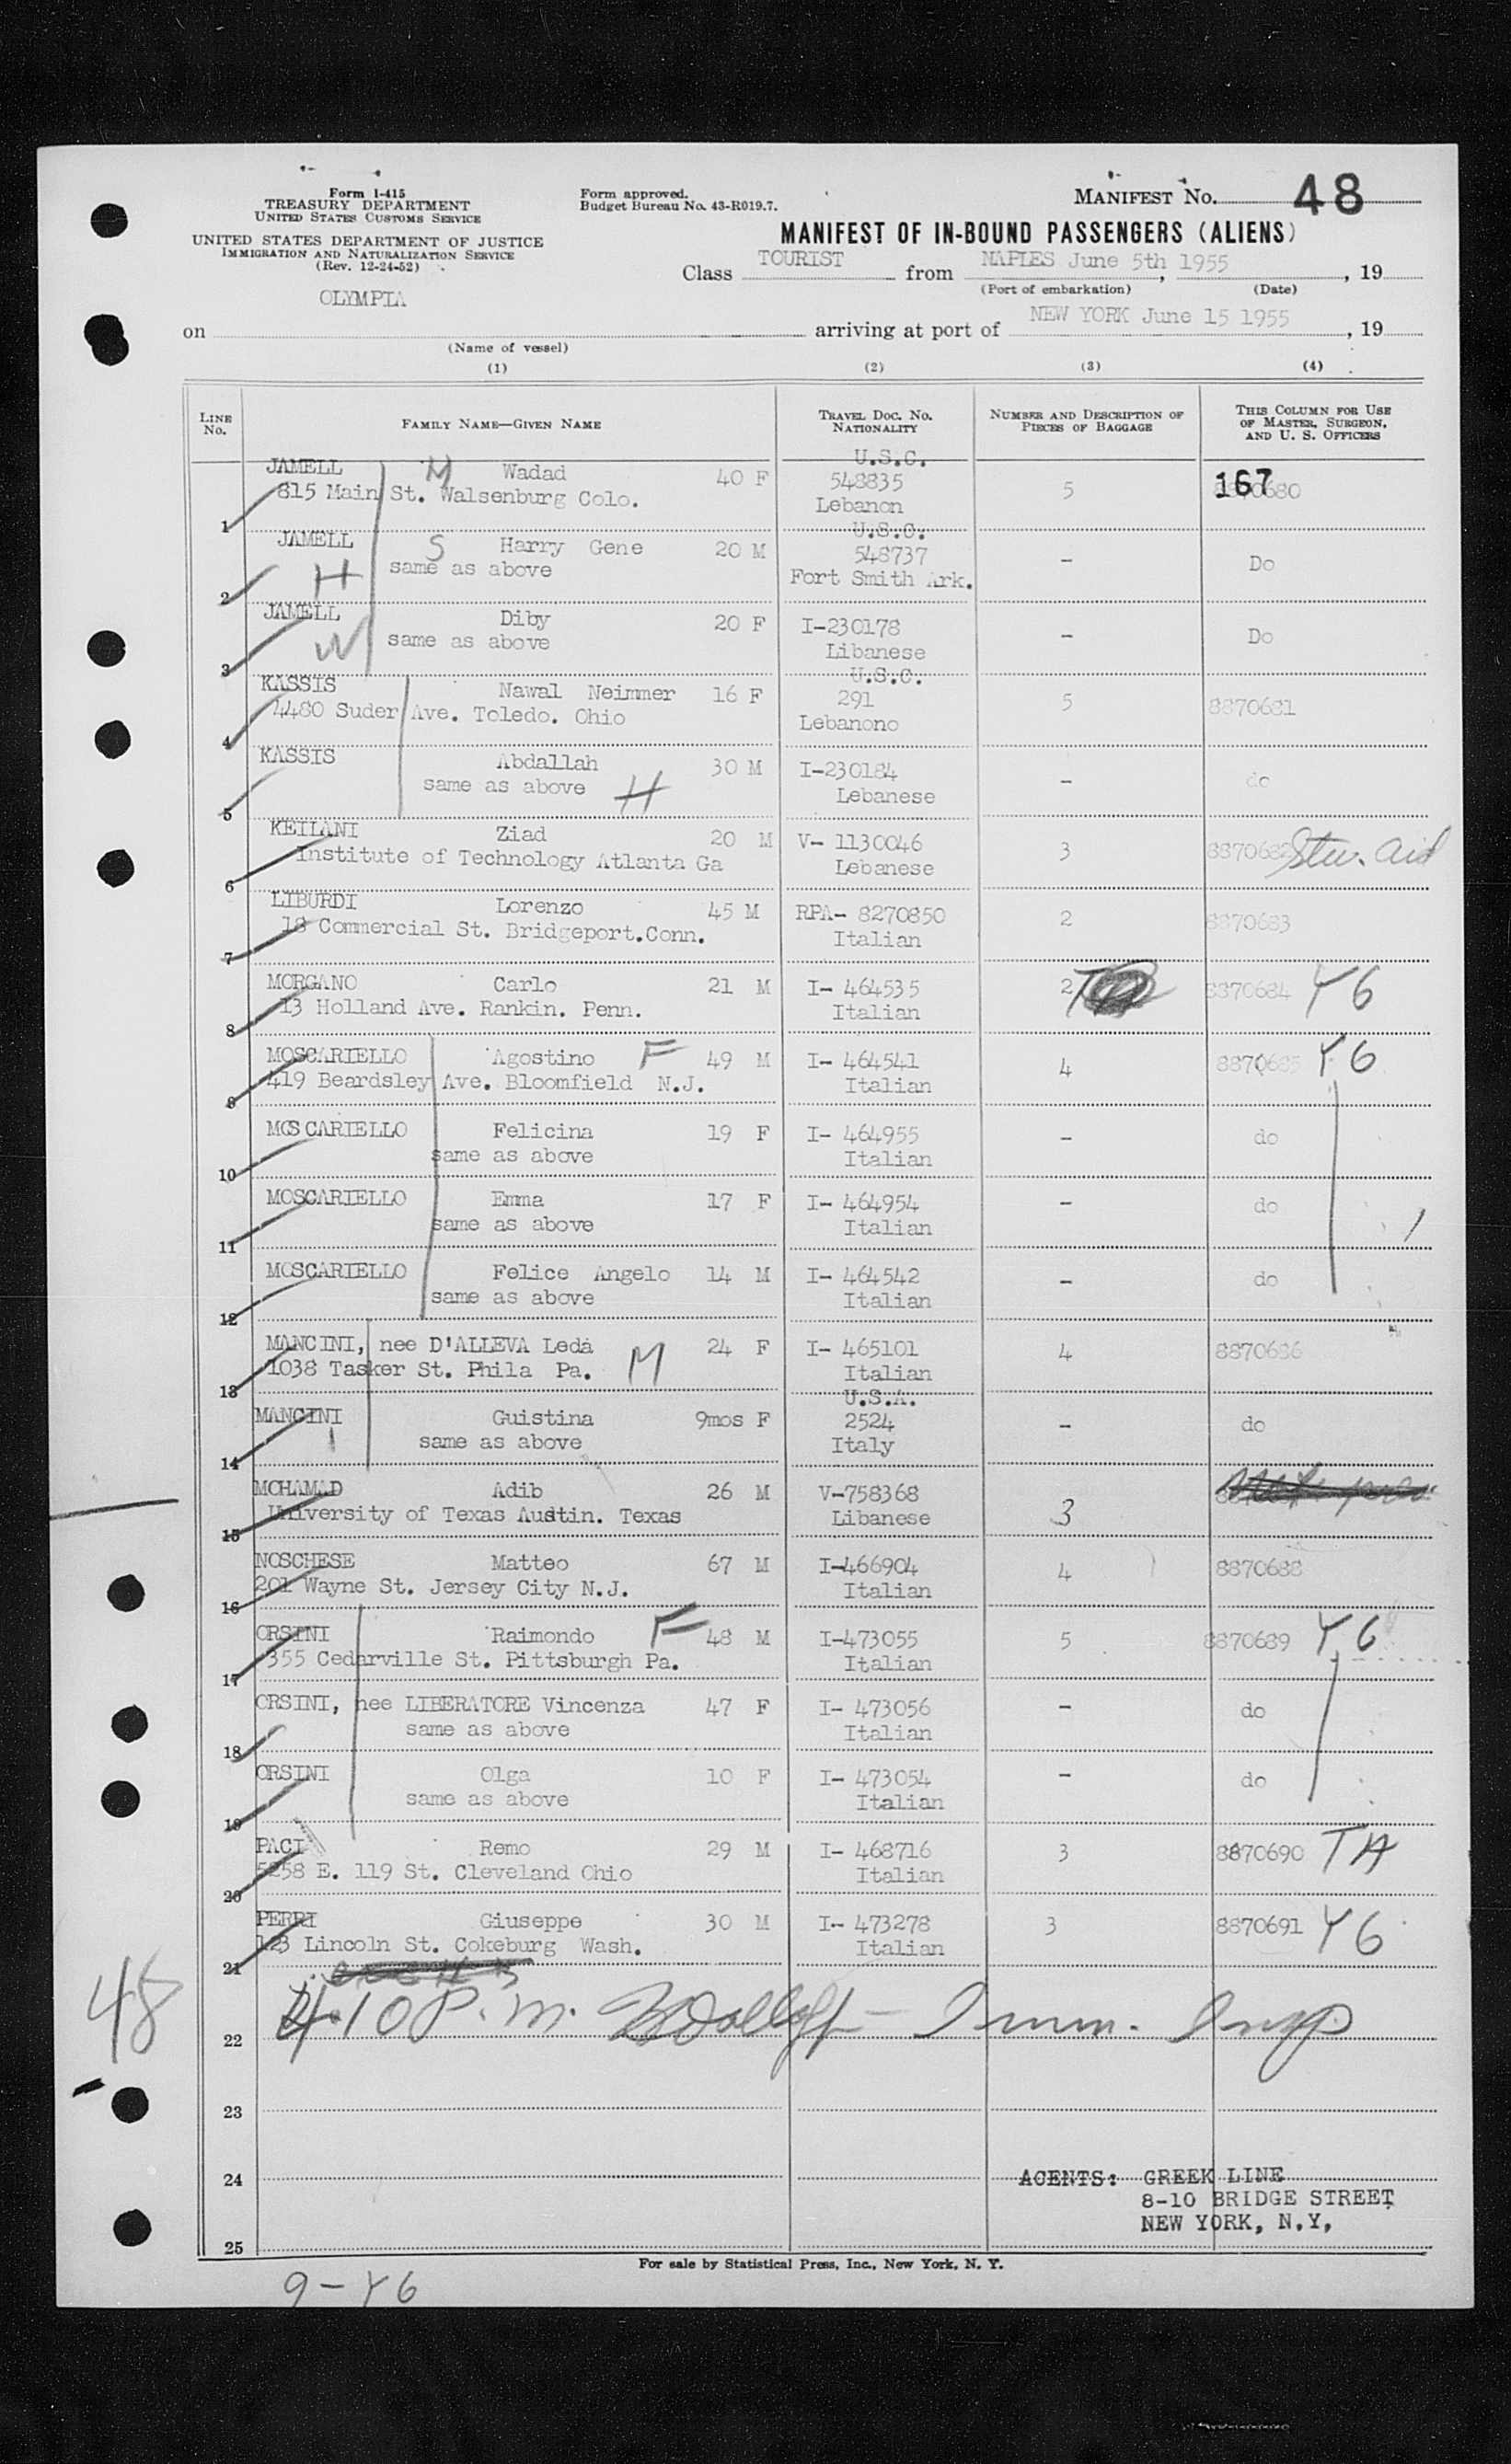 Form I-415
TREASURY DEPARTMENT
UNITED STATES CUSTOMS SERVICE
UNITED STATES DEPARTMENT OF JUSTICE
IMMIGRATION AND NATURALIZATION SERVICE
(Rev. 12-24-52)
Form approved.
Budget Bureau No. 43-R019.7.
MANIFEST NO. 48
MANIFEST OF IN-BOUND PASSENGERS (ALIENS)
Class TOURIST from NAPLES June 5th 1955, 19
(Port of embarkation) (Date)
on OLYMPIA arriving at port of NEW YORK June 15 1955, 19
(Name of vessel)
(1) (2) (3) (4)
LINE No. FAMILY NAME—GIVEN NAME TRAVEL DOC. NO. NATIONALITY NUMBER AND DESCRIPTION OF PIECES OF BAGGAGE THIS COLUMN FOR USE OF MASTER, SURGEON, AND U. S. OFFICERS
U.S.C.
JAMELL M Wadad 40 F 548835 5 167 680
1 815 Main St. Walsenburg Colo. Lebanon
U.S.C.
JAMELL S Harry Gene 20 M 548737 - Do
2 H same as above Fort Smith Ark.
JAMELL Diby 20 F I-230178 - Do
3 W same as above Libanese
U.S.C.
KASSIS Nawal Neimmer 16 F 291 5 8870681
4 4480 Suder Ave. Toledo. Ohio Lebanono
KASSIS Abdallah 30 M I-230184 - do
5 same as above H Lebanese
KEILANI Ziad 20 M V- 1130046 3 8870682 Stu. Aid
6 Institute of Technology Atlanta Ga Lebanese
LIBURDI Lorenzo 45 M RPA- 8270850 2 8870683
7 18 Commercial St. Bridgeport.Conn. Italian
MORGANO Carlo 21 M I- 464535 2 8870684 Y6
8 13 Holland Ave. Rankin. Penn. Italian
MOSCARIELLO Agostino F 49 M I- 464541 4 8870685 Y6
9 419 Beardsley Ave. Bloomfield N.J. Italian
MOSCARIELLO Felicina 19 F I- 464955 - do
10 same as above Italian
MOSCARIELLO Emma 17 F I- 464954 - do
11 same as above Italian
MOSCARIELLO Felice Angelo 14 M I- 464542 - do
12 same as above Italian
MANCINI, nee D'ALLEVA Leda 24 F I- 465101 4 8870686
13 1038 Tasker St. Phila Pa. M Italian
U.S.A.
MANCINI Guistina 9mos F 2524 - do
14 same as above Italy
MOHAMAD Adib 26 M V-758368 3
15 University of Texas Austin. Texas Libanese
NOSCHESE Matteo 67 M I-466904 4 8870688
16 201 Wayne St. Jersey City N.J. Italian
ORSINI Raimondo F 48 M I-473055 5 8870689 Y6
17 355 Cedarville St. Pittsburgh Pa. Italian
ORSINI, nee LIBERATORE Vincenza 47 F I- 473056 - do
18 same as above Italian
ORSINI Olga 10 F I- 473054 - do
19 same as above Italian
PACI Remo 29 M I- 468716 3 8870690 TA
20 5258 E. 119 St. Cleveland Ohio Italian
PERRI Giuseppe 30 M I- 473278 3 8870691 Y6
21 123 Lincoln St. Cokeburg Wash. Italian
48
22 4.10 P.m. Imm. Insp.
23
24 AGENTS: GREEK LINE
8-10 BRIDGE STREET
NEW YORK, N.Y,
25
For sale by Statistical Press, Inc., New York, N. Y.
9-Y6